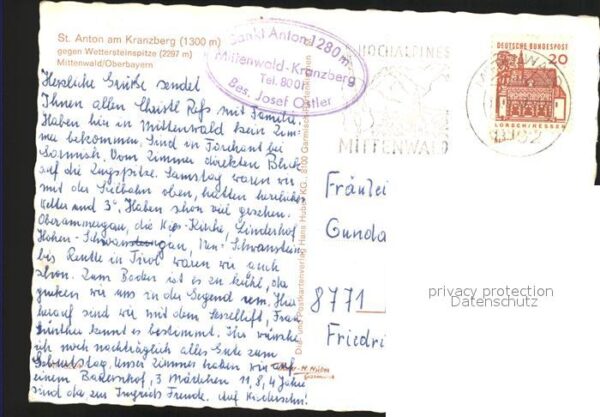 St. Anton am Kranzberg (1300 m)
gegen Wettersteinspitze (2297 m)
Mittenwald/Oberbayern
Sankt Anton 1280 m
Mittenwald-Kranzberg
Tel. 8001
Bes. Josef Ostler
HOCHALPINES
MITTENWALD
DEUTSCHE BUNDESPOST
20
LORSCH/HESSEN
Herzliche Grüße sendet
Ihnen allen Christl Refs mit Familie.
Haben hier in Mittenwald kein Zim-
mer bekommen. Sind in Farchant bei
Garmisch. Vom Zimmer direkten Blick
auf die Zugspitze. Samstag waren wir
mit der Seilbahn oben, hatten herrliches
Wetter und 3°. Haben schon viel gesehen.
Oberammergau, die Wies-Kirche, Linderhof,
Hohen-Schwangau, Neu-Schwanstein
bis Reutte in Tirol waren wir auch
schon. Zum Baden ist es zu kühl, da
gucken wir uns in der Gegend rum. Hier
herauf sind wir mit dem Sessellift, Frau
Günther kennt es bestimmt. Ihr wünsche
ich noch nachträglich alles Gute zum
Geburtstag. Unser Zimmer haben wir auf
einem Bauernhof, 3 Mädchen 11, 8, 4 Jahre
sind da zur Ingrids Freude. Auf Wiedersehn!
Fräulei
Gunda
8771
Friedri
privacy protection
Datenschutz